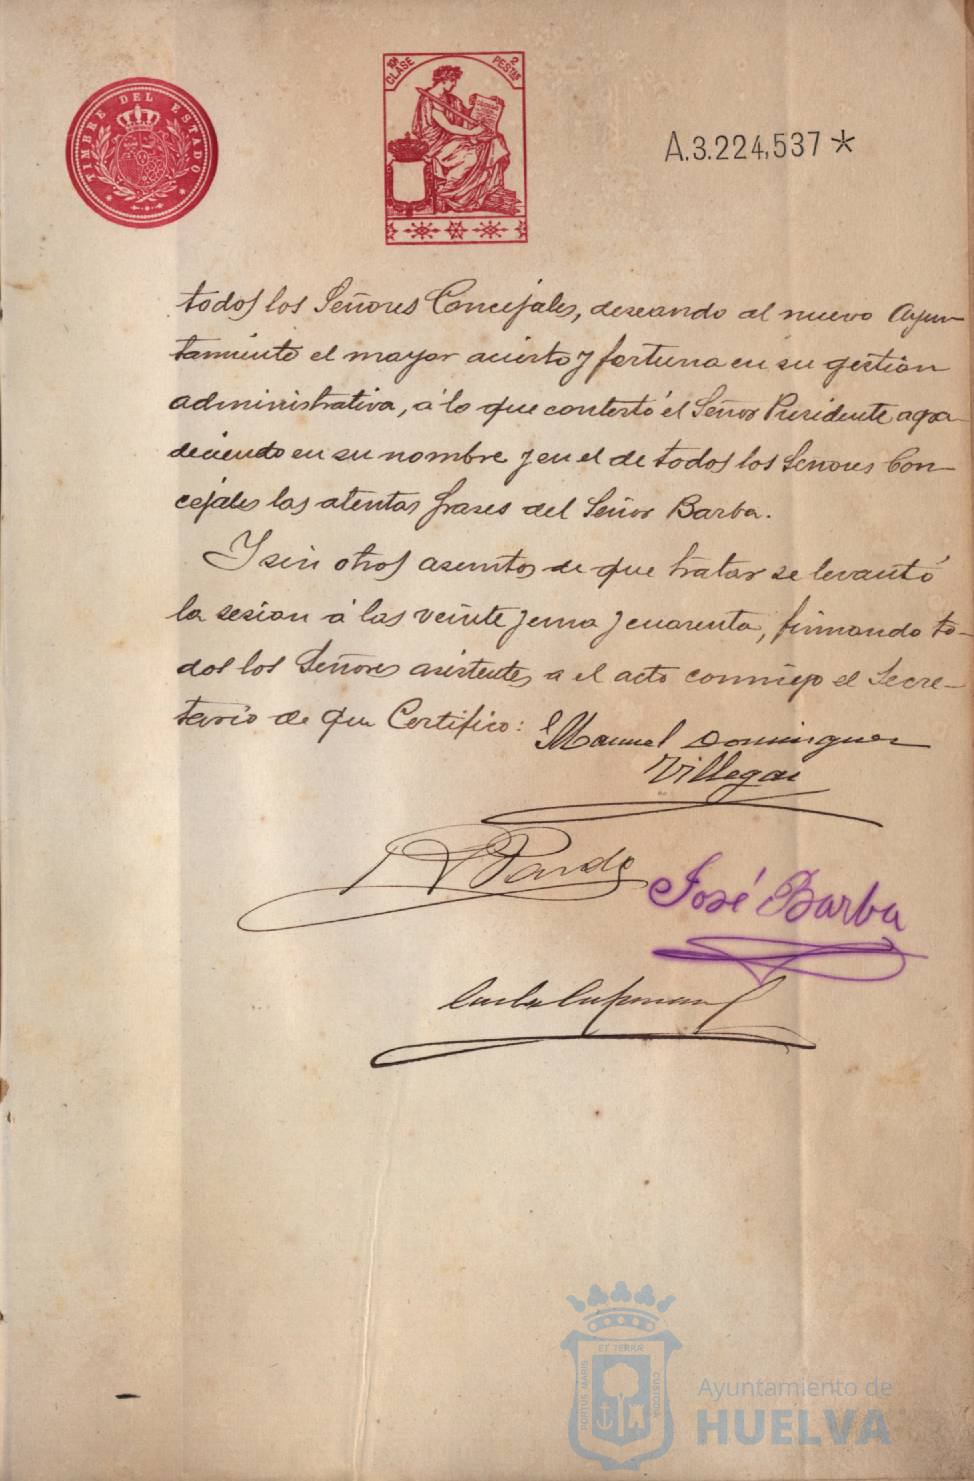 TIMBRE DEL ESTADO
10ª CLASE 2 PESTAS
A.3.224,537*
todos los Señores Concejales, deseando al nuevo Ayun-
tamiento el mayor acierto y fortuna en su gestion
administrativa, á lo que contestó el Señor Presidente agra-
deciendo en su nombre y en el de todos los Señores Con-
cejales las atentas frases del Señor Barba.
Y sin otros asuntos de que tratar se levantó
la sesion á las veinte y una y cuarenta, firmando to-
dos los Señores asistentes a el acto conmigo el Secre-
tario de que Certifico:
Manuel Dominguez
Villegas
Pardo
José Barba
ET TERRÆ
PORTUS MARIS
CUSTODIA
Ayuntamiento de
HUELVA